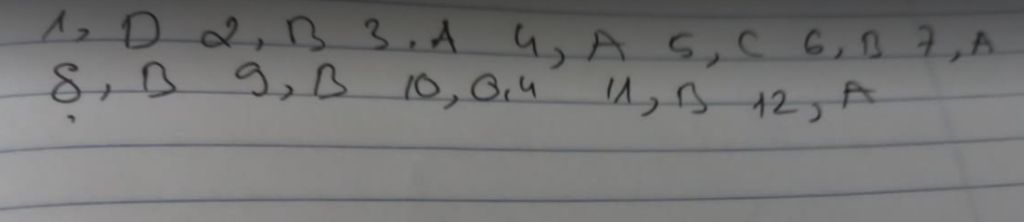 1, D 2, B 3. A 4, A 5, C 6, B 7, A
8, B 9, B 10, 0,4 11, B 12, A